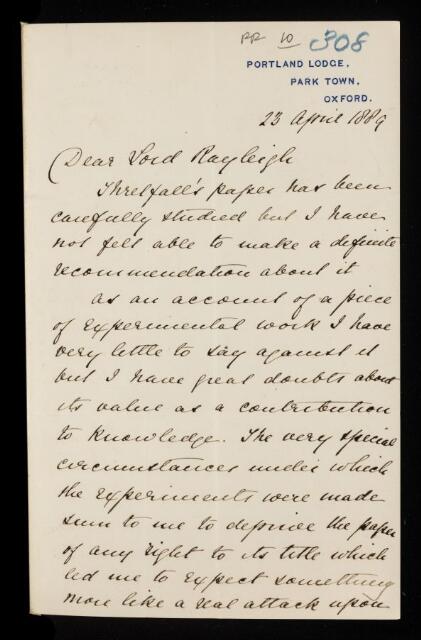 RR 10 308
PORTLAND LODGE,
PARK TOWN,
OXFORD.
23 April 1889
Dear Lord Rayleigh
Threlfall's paper has been
carefully studied but I have
not felt able to make a definite
recommendation about it
As an account of a piece
of experimental work I have
very little to say against it
but I have great doubts about
its value as a contribution
to knowledge. The very special
circumstances under which
the experiments were made
seem to me to deprive the paper
of any right to its title which
led me to expect something
more like a real attack upon